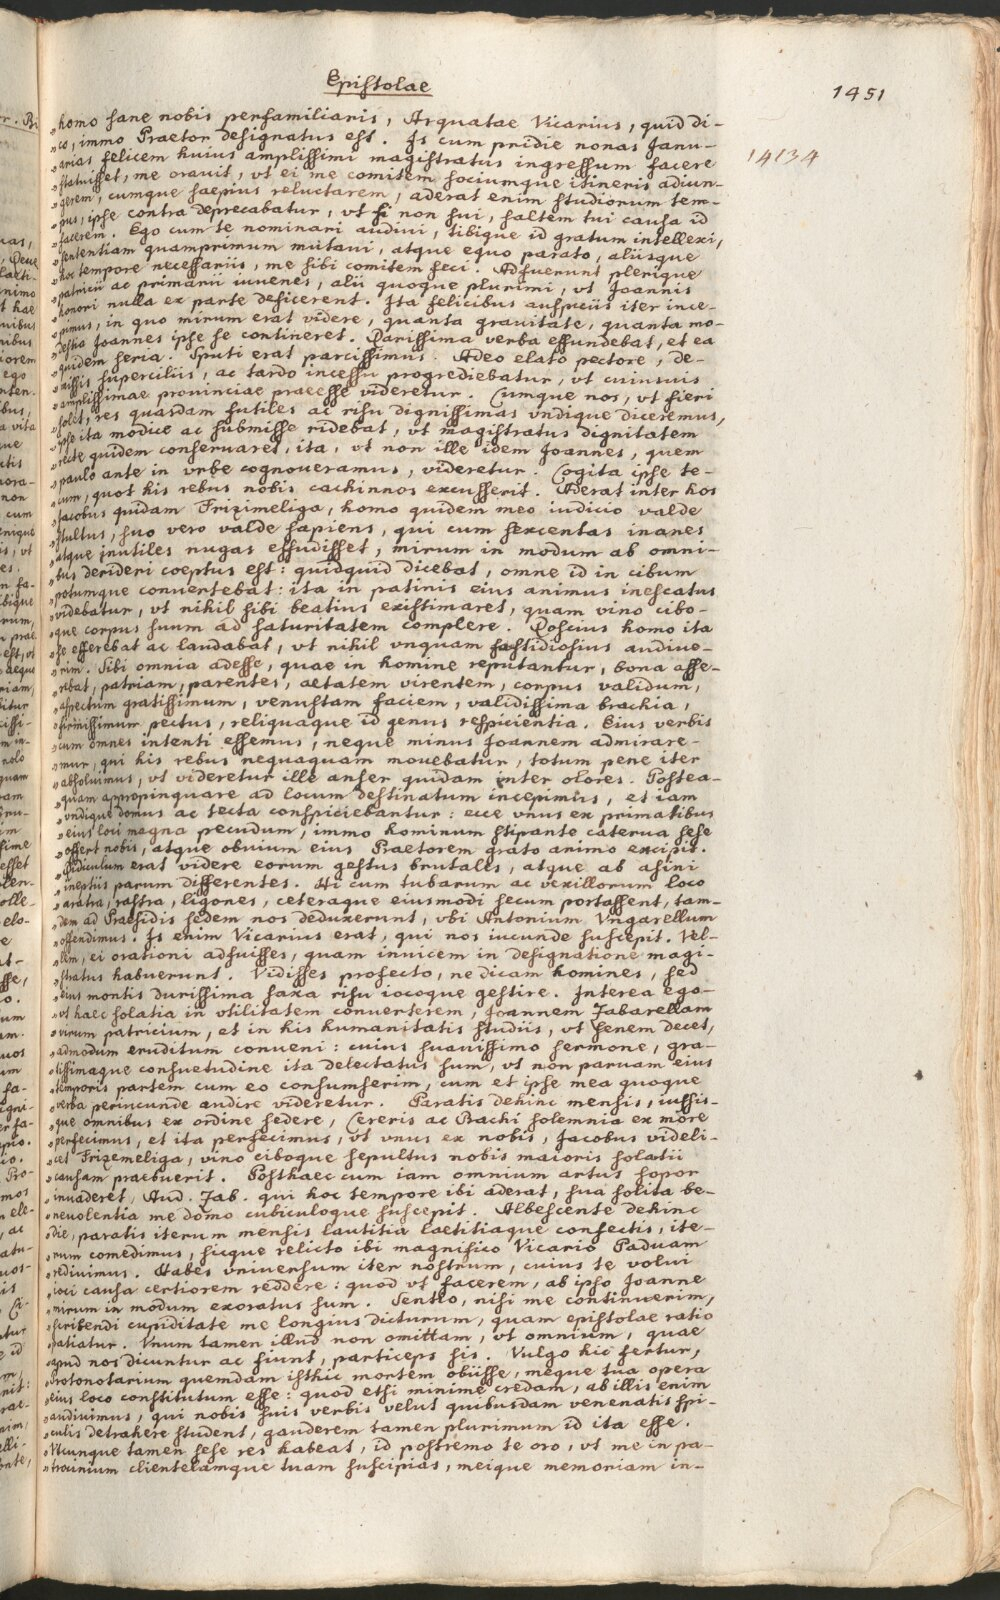 Epistolae
1451
14134
„homo sane nobis perfamiliaris, Arquatae Vicarius, quid di-
„co, immo Praetor designatus est. Is cum pridie nonas Janu-
„arias felicem huius amplissimi magistratus ingressum facere
„statuisset, me orauit, vt ei me comitem sociumque itineris adiun-
„gerem, cumque saepius reluctarem, aderat enim studiorum tem-
„pus, ipse contra deprecabatur, vt si non sui, saltem tui causa id
„facerem. Ego cum te nominari audiui, tibique id gratum intellexi,
„sententiam quamprimum mutaui, atque equo parato, aliisque
„hoc tempore necessariis, me sibi comitem feci. Adfuerunt plerique
„patricii ac primarii iuuenes, alii quoque plurimi, vt Joannis
„honori nulla ex parte deficerent. Ita felicibus auspiciis iter ince-
„pimus, in quo mirum erat videre, quanta grauitate, quanta mo-
„destia Joannes ipse se contineret. Parissima verba effundebat, et ea
„quidem seria. Sputi erat parcissimus. Adeo elato pectore, de-
„missis superciliis, ac tardo incessu progrediebatur, vt cuiusuis
„amplissimae prouinciae praeesse videretur. Cumque nos, vt fieri
„solet, res quasdam futiles ac risu dignissimas vndique diceremus,
„ipse ita modice ac submisse ridebat, vt magistratus dignitatem
„recte quidem conseruaret, ita, vt non ille idem Joannes, quem
„paulo ante in vrbe cognoueramus, videretur. Cogita ipse te-
„cum, quot his rebus nobis cachinnos excusserit. Aderat inter hos
„Jacobus quidam Frizimeliga, homo quidem meo iudicio valde
„stultus, suo vero valde sapiens, qui cum sexcentas inanes
„atque inutiles nugas effudisset, mirum in modum ab omni-
„bus derideri coeptus est: quidquid dicebat, omne id in cibum
„potumque conuertebat: ita in patinis eius animus inescatus
„videbatur, vt nihil sibi beatius existimaret, quam vino cibo-
„que corpus suum ad saturitatem complere. Roscius homo ita
„se efferebat ac laudabat, vt nihil vnquam fastidiosius audiue-
„rim. Sibi omnia adesse, quae in homine reputantur, bona asse-
„rebat, patriam, parentes, aetatem virentem, corpus validum,
„aspectum gratissimum, venustam faciem, validissima brachia,
„firmissimum pectus, reliquaque id genus respicientia. Eius verbis
„cum omnes intenti essemus, neque minus Joannem admirare-
„mur, qui his rebus nequaquam mouebatur, totum pene iter
„absoluimus, vt videretur ille anser quidam inter olores. Postea-
„quam appropinquare ad locum destinatum incepimus, et iam
„vndique domus ac tecta conspiciebantur: ecce vnus ex primatibus
„eius loci magna pecudum, immo hominum stipante caterua sese
„offert nobis, atque obuium eius Praetorem grato animo excipit.
„Ridiculum erat videre eorum gestus brutales, atque ab asini
„ineptiis parum differentes. Hi cum tubarum ac vexillorum loco
„aratra, rastra, ligones, ceteraque eiusmodi secum portassent, tam-
„dem ad Praesidis sedem nos deduxerunt, vbi Antonium Vngarellum
„offendimus. Is enim Vicarius erat, qui nos iucunde suscepit. Vel-
„lem, ei orationi adfuisses, quam inuicem in designatione magi-
„stratus habuerunt. Vidisses profecto, ne dicam homines, sed
„eius montis durissima saxa risu iocoque gestire. Interea ego-
„vt haec solatia in vtilitatem conuerterem, Joannem Jabarellam
„virum patricium, et in his humanitatis studiis, vt senem decet,
„admodum eruditum conueni: cuius suauissimo sermone, gra-
„tissimaque consuetudine ita delectatus sum, vt non paruam eius
„temporis partem cum eo consumserim, cum et ipse mea quoque
„verba periucunde audire videretur. Paratis dehinc mensis, iussis-
„que omnibus ex ordine sedere, Cereris ac Bachi solemnia ex more
„perfecimus, et ita perfecimus, vt vnus ex nobis, Jacobus videli-
„cet Frizemeliga, vino ciboque sepultus nobis maioris solatii
„causam praebuerit. Posthaec cum iam omnium artus sopor
„inuaderet, Aud. Jab. qui hoc tempore ibi aderat, sua solita be-
„neuolentia me domo cubiculoque suscepit. Albescente dehinc
„die, paratis iterum mensis lautitia laetitiaque confectis, ite-
„rum comedimus, sicque relicto ibi magnifico Vicario Paduam
„rediuimus. Habes vniuersum iter nostrum, cuius te volui
„ioci causa certiorem reddere: quod vt facerem, ab ipso Joanne
„mirum in modum exoratus sum. Sentio, nisi me continuerim,
„scribendi cupiditate me longius dicturum, quam epistolae ratio
„patiatur. Vnum tamen illud non omittam, vt omnium, quae
„apud nos dicuntur ac fiunt, particeps sis. Vulgo hic fertur,
„Protonotarium quemdam isthic mortem obiisse, meque tua opera
„eius loco constitutum esse: quod etsi minime credam, ab illis enim
„audiuimus, qui nobis suis verbis velut quibusdam venenatis spi-
„culis detrahere student, gauderem tamen plurimum id ita esse.
„Vtcunque tamen sese res habeat, id postremo te oro, vt me in pa-
„trocinium clientelamque tuam suscipias, meique memoriam in-